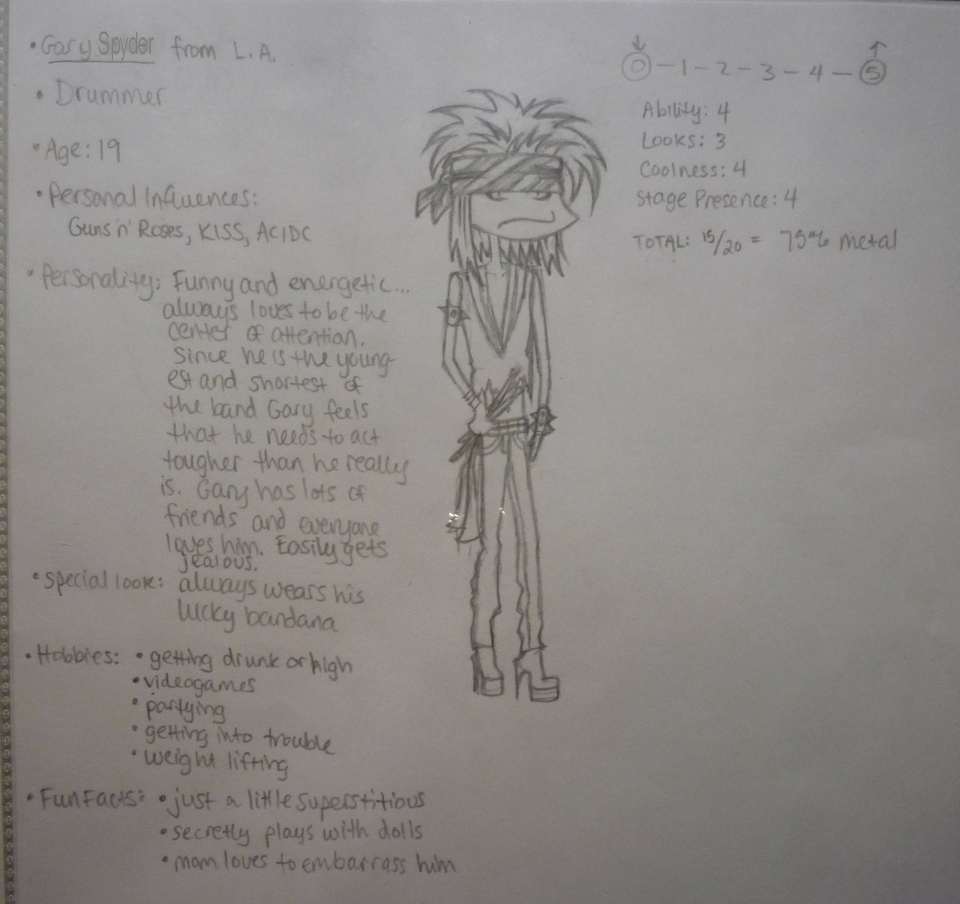 • Gary Spyder from L.A.
• Drummer
• Age: 19
• Personal Influences:
Guns 'n' Roses, KISS, ACIDC
• Personality: Funny and energetic...
always loves to be the
center of attention.
Since he is the young-
est and shortest of
the band Gary feels
that he needs to act
tougher than he really
is. Gary has lots of
friends and everyone
loves him. Easily gets
jealous.
• Special look: always wears his
lucky bandana
• Hobbies: • getting drunk or high
• videogames
• partying
• getting into trouble
• weight lifting
• Fun Facts: • just a little superstitious
• secretly plays with dolls
• mom loves to embarrass him
↓ ↑
0 - 1 - 2 - 3 - 4 - 5
Ability: 4
Looks: 3
Coolness: 4
Stage Presence: 4
TOTAL: 15/20 = 75% metal